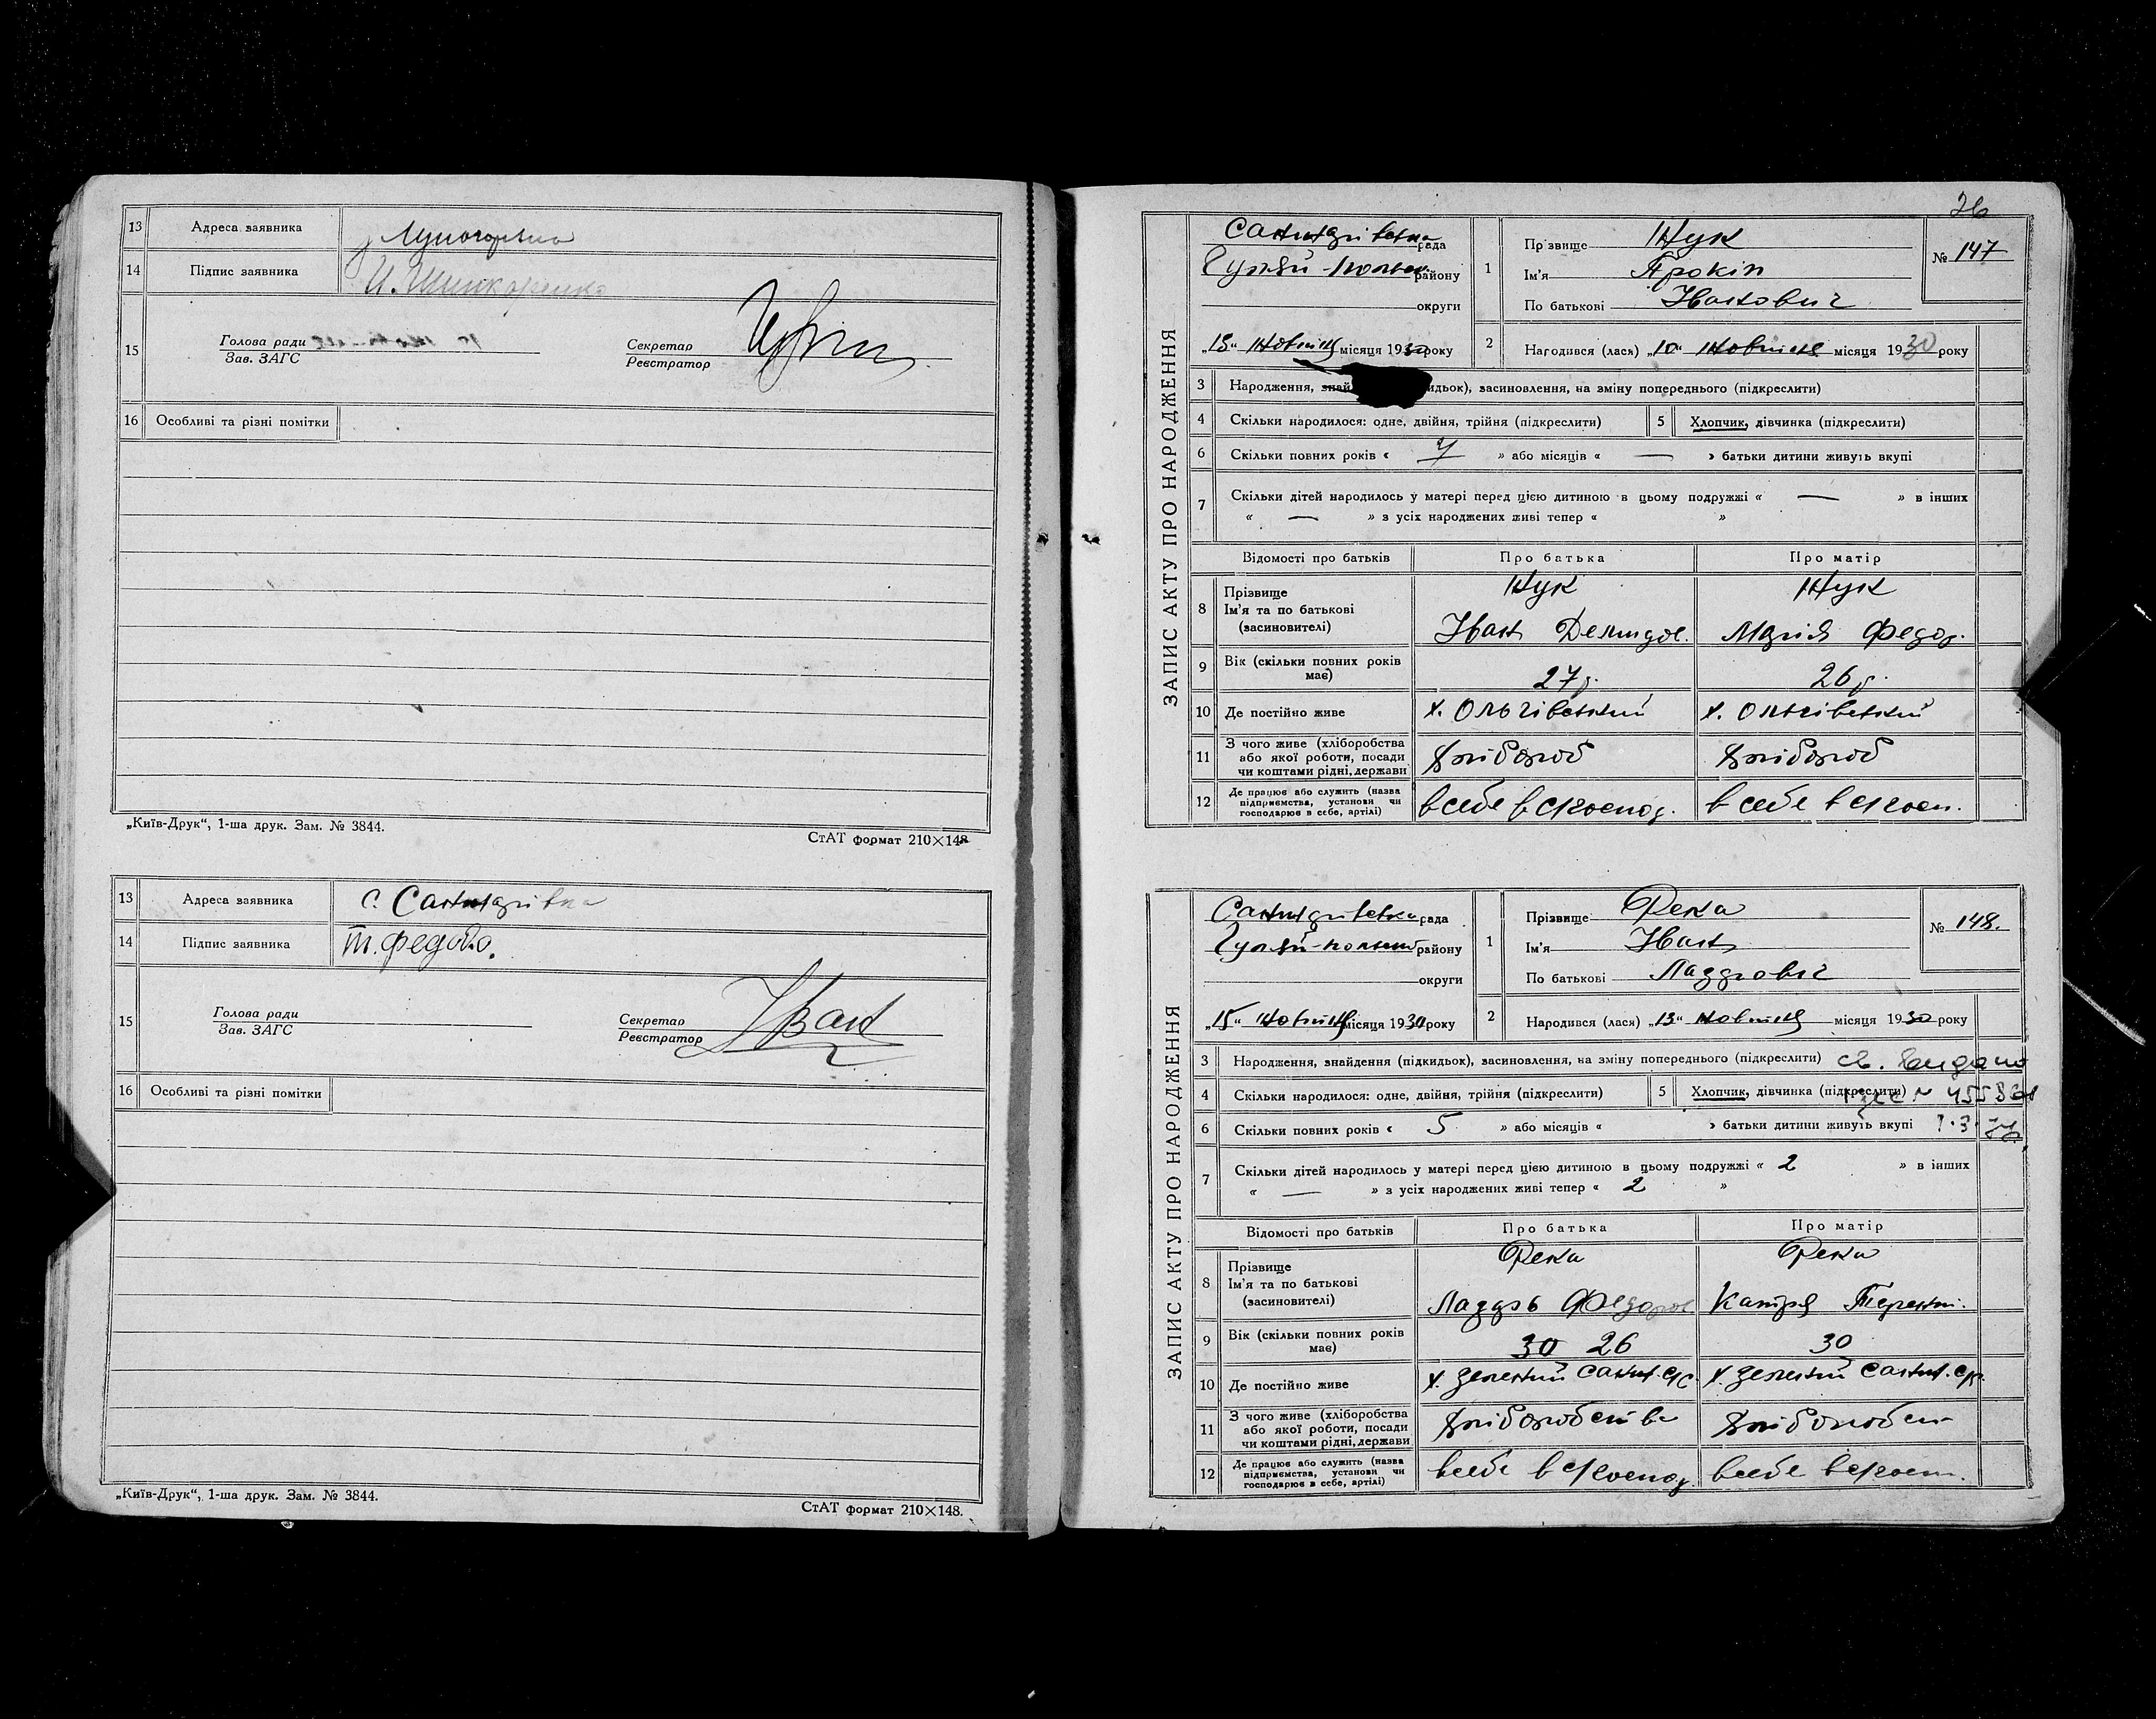 13 Адреса заявника
14 Підпис заявника
15 Голова ради
Зав. ЗАГС
Секретар
Реєстратор
16 Особливі та різні помітки
„Київ-Друк“, 1-ша друк. Зам. № 3844.
СтАТ формат 210×148
13 Адреса заявника с.
14 Підпис заявника
15 Голова ради
Зав. ЗАГС
Секретар
Реєстратор
16 Особливі та різні помітки
„Київ-Друк“, 1-ша друк. Зам. № 3844.
СтАТ формат 210×148.
26
ЗАПИС АКТУ ПРО НАРОДЖЕННЯ
рада
Гуляй- району
округи
„15“ жовтня місяця 1930 року
1 Прізвище Жук
Ім'я
По батькові Іванович
№ 147
2 Народився (лася) „10“ жовтня місяця 1930 року
3 Народження, знай идьок), засиновлення, на зміну попереднього (підкреслити)
4 Скільки народилося: одне, двійня, трійня (підкреслити)
5 Хлопчик, дівчинка (підкреслити)
6 Скільки повних років « 7 » або місяців « — » батьки дитини живуть вкупі
7 Скільки дітей народилось у матері перед цією дитиною в цьому подружжі « — » в інших
« — » з усіх народжених живі тепер « »
Відомості про батьків Про батька Про матір
8 Прізвище Жук Жук
Ім'я та по батькові Іван Демидов. Марія Федор.
(засиновителі)
9 Вік (скільки повних років має) 27 р. 26 р.
10 Де постійно живе х. Ольгівський х. Ольгівський
11 З чого живе (хліборобства
або якої роботи, посади хлібороб хлібороб
чи коштами рідні, держави
12 Де працює або служить (назва
підприємства, установи чи в себе в в себе в
господарює в себе, артілі)
ЗАПИС АКТУ ПРО НАРОДЖЕННЯ
рада
Гуляй- району
округи
„15“ жовтня місяця 1930 року
1 Прізвище Река
Ім'я Іван
По батькові
№ 148.
2 Народився (лася) „13“ жовтня місяця 1930 року
3 Народження, знайдення (підкидьок), засиновлення, на зміну попереднього (підкреслити) св. видано
4 Скільки народилося: одне, двійня, трійня (підкреслити)
5 Хлопчик, дівчинка (підкреслити)
6 Скільки повних років « 5 » або місяців « » батьки дитини живуть вкупі
7 Скільки дітей народилось у матері перед цією дитиною в цьому подружжі « 2 » в інших
« — » з усіх народжених живі тепер « 2 »
Відомості про батьків Про батька Про матір
8 Прізвище Река Река
Ім'я та по батькові Федоров Катря Терент.
(засиновителі)
9 Вік (скільки повних років має) 30 26 30
10 Де постійно живе х. Зелений х. Зелений
11 З чого живе (хліборобства
або якої роботи, посади хліборобства хліборобст
чи коштами рідні, держави
12 Де працює або служить (назва
підприємства, установи чи в себе в в себе в
господарює в себе, артілі)